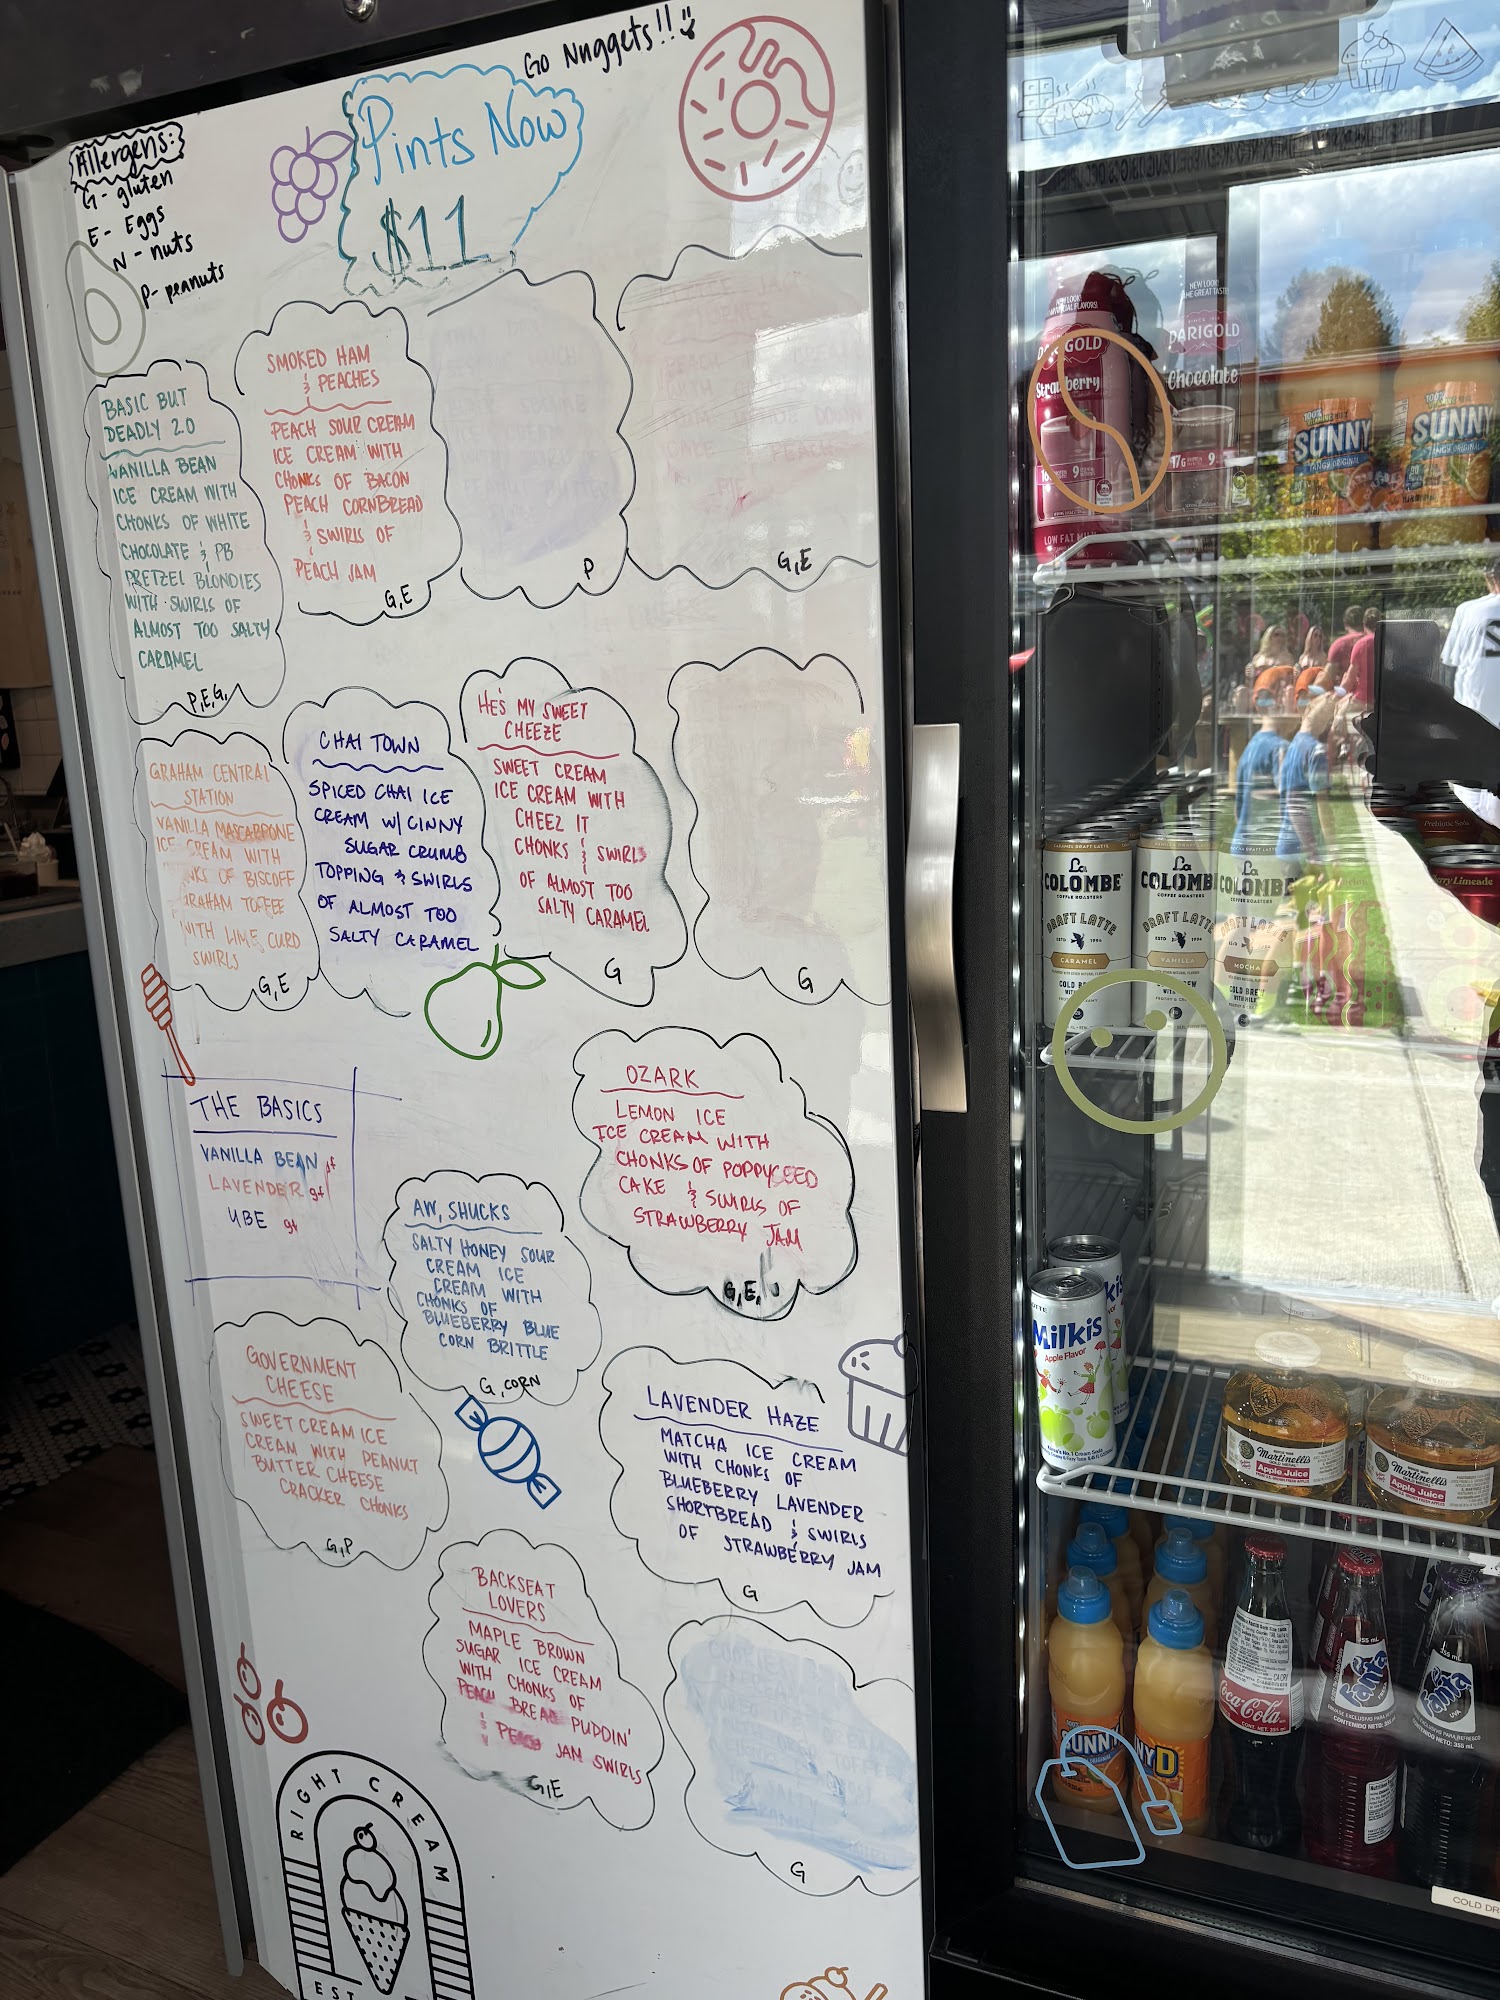 Go Nuggets!!
Pints Now
$11
Allergens:
G- gluten
E- Eggs
N- nuts
P- peanuts
BASIC BUT
DEADLY 2.0
VANILLA BEAN
ICE CREAM WITH
CHONKS OF WHITE
CHOCOLATE & PB
PRETZEL BLONDIES
WITH SWIRLS OF
ALMOST TOO SALTY
CARAMEL
P,E,G,
SMOKED HAM
& PEACHES
PEACH SOUR CREAM
ICE CREAM WITH
CHONKS OF BACON
PEACH CORNBREAD
& SWIRLS OF
PEACH JAM
G,E
P
G,E
GRAHAM CENTRAL
STATION
VANILLA MASCARPONE
ICE CREAM WITH
OF BISCOFF
GRAHAM TOFFEE
WITH LIME CURD
SWIRLS
G,E
CHAI TOWN
SPICED CHAI ICE
CREAM W/ CINNY
SUGAR CRUMB
TOPPING & SWIRLS
OF ALMOST TOO
SALTY CARAMEL
HE'S MY SWEET
CHEEZE
SWEET CREAM
ICE CREAM WITH
CHEEZ IT
CHONKS & SWIRLS
OF ALMOST TOO
SALTY CARAMEL
G
G
THE BASICS
VANILLA BEAN gf
LAVENDER gf
UBE gf
OZARK
LEMON ICE
ICE CREAM WITH
CHONKS OF POPPYSEED
CAKE & SWIRLS OF
STRAWBERRY JAM
G,E,
AW, SHUCKS
SALTY HONEY SOUR
CREAM ICE
CREAM WITH
CHONKS OF
BLUEBERRY BLUE
CORN BRITTLE
G, CORN
GOVERNMENT
CHEESE
SWEET CREAM ICE
CREAM WITH PEANUT
BUTTER CHEESE
CRACKER CHONKS
G,P
LAVENDER HAZE
MATCHA ICE CREAM
WITH CHONKS OF
BLUEBERRY LAVENDER
SHORTBREAD & SWIRLS
OF STRAWBERRY JAM
G
BACKSEAT
LOVERS
MAPLE BROWN
SUGAR ICE CREAM
WITH CHONKS OF
PEACH BREAD PUDDIN'
& PEACH JAM SWIRLS
G,E
G
RIGHT CREAM
EST
NEW LOOK
DARIGOLD
Chocolate
Strawberry
LOW FAT
100%
SUNNY
TANGY ORIGINAL
100%
SUNNY
TANGY ORIGINAL
La
COLOMBE
COFFEE ROASTERS
DRAFT LATTE
CARAMEL
COLD BREW
La
COLOMBE
COFFEE ROASTERS
DRAFT LATTE
VANILLA
La
COLOMBE
DRAFT LATTE
MOCHA
COLD BREW
Prebiotic Soda
Limeade
Milkis
Apple Flavor
Martinelli's
Apple Juice
Martinelli's
Apple Juice
SUNNY
NYD
Coca-Cola
Fanta
355 mL
Fanta
UVA
355 mL
COLD DR